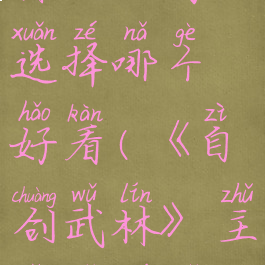 xuǎn zé nǎ gè
选择哪个
hǎo kàn zì
好看(《自
chuàng wǔ lín zhǔ
创武林》主